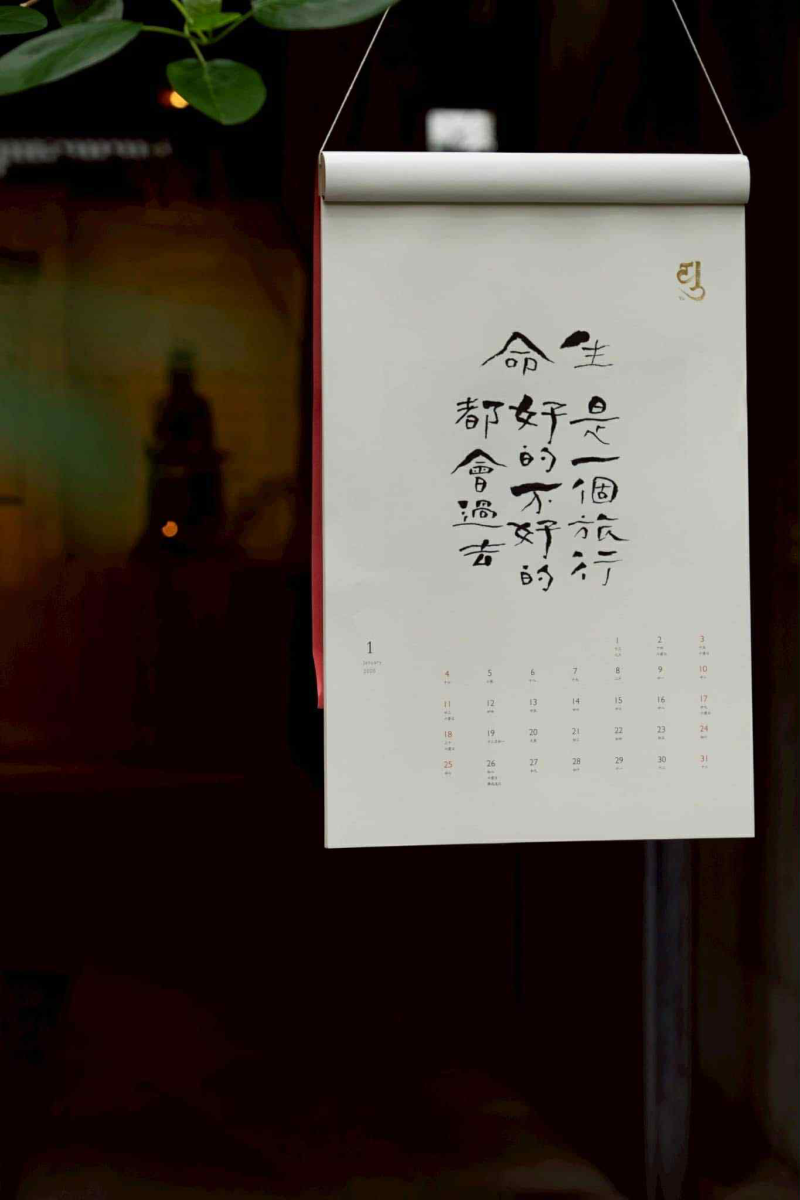 生命
是一個旅行
好的不好的
都會過去
1
January
1 2 3
4 5 6 7 8 9 10
11 12 13 14 15 16 17
18 19 20 21 22 23 24
25 26 27 28 29 30 31